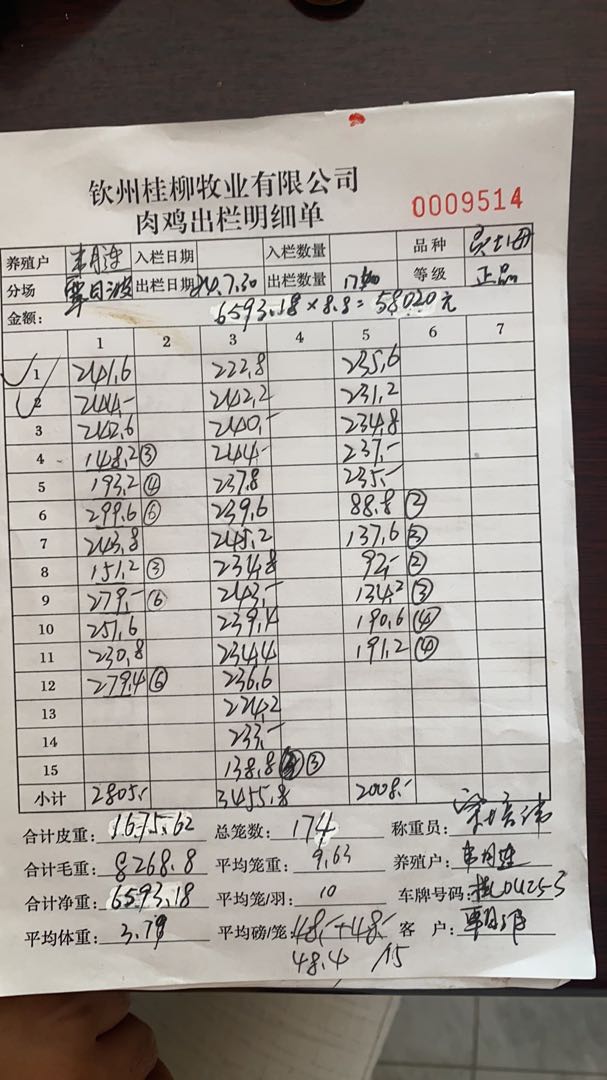 钦州桂柳牧业有限公司
肉鸡出栏明细单 0009514
养殖户 入栏日期 入栏数量 品种
分场 覃日波 出栏日期 7.30 出栏数量 等级 正品
金额: 6593.18×8.8=58020元
1 2 3 4 5 6 7
1 241.6 222.8 235.6
2 244.- 242.2 231.2
3 242.6 240.- 234.8
4 148.2③ 244.- 237.-
5 193.2④ 237.8 235.-
6 299.6⑥ 239.6 88.8②
7 243.8 245.2 137.6③
8 151.2③ 234.8 92.-②
9 279.-⑥ 243.- 134.2③
10 251.6 239.4 190.6④
11 230.8 234.4 191.2④
12 279.4⑥ 236.6
13 224.2
14 233.-
15 138.8③
小计 2805.- 3455.8 2008.-
合计皮重: 1675.62 总笼数: 174 称重员:
合计毛重: 8268.8 平均笼重: 9.63 养殖户:
合计净重: 6593.18 平均笼/羽: 10 车牌号码: 桂
平均体重: 3.79 平均磅/笼: 48.-+48.- 客户:
48.4 /15